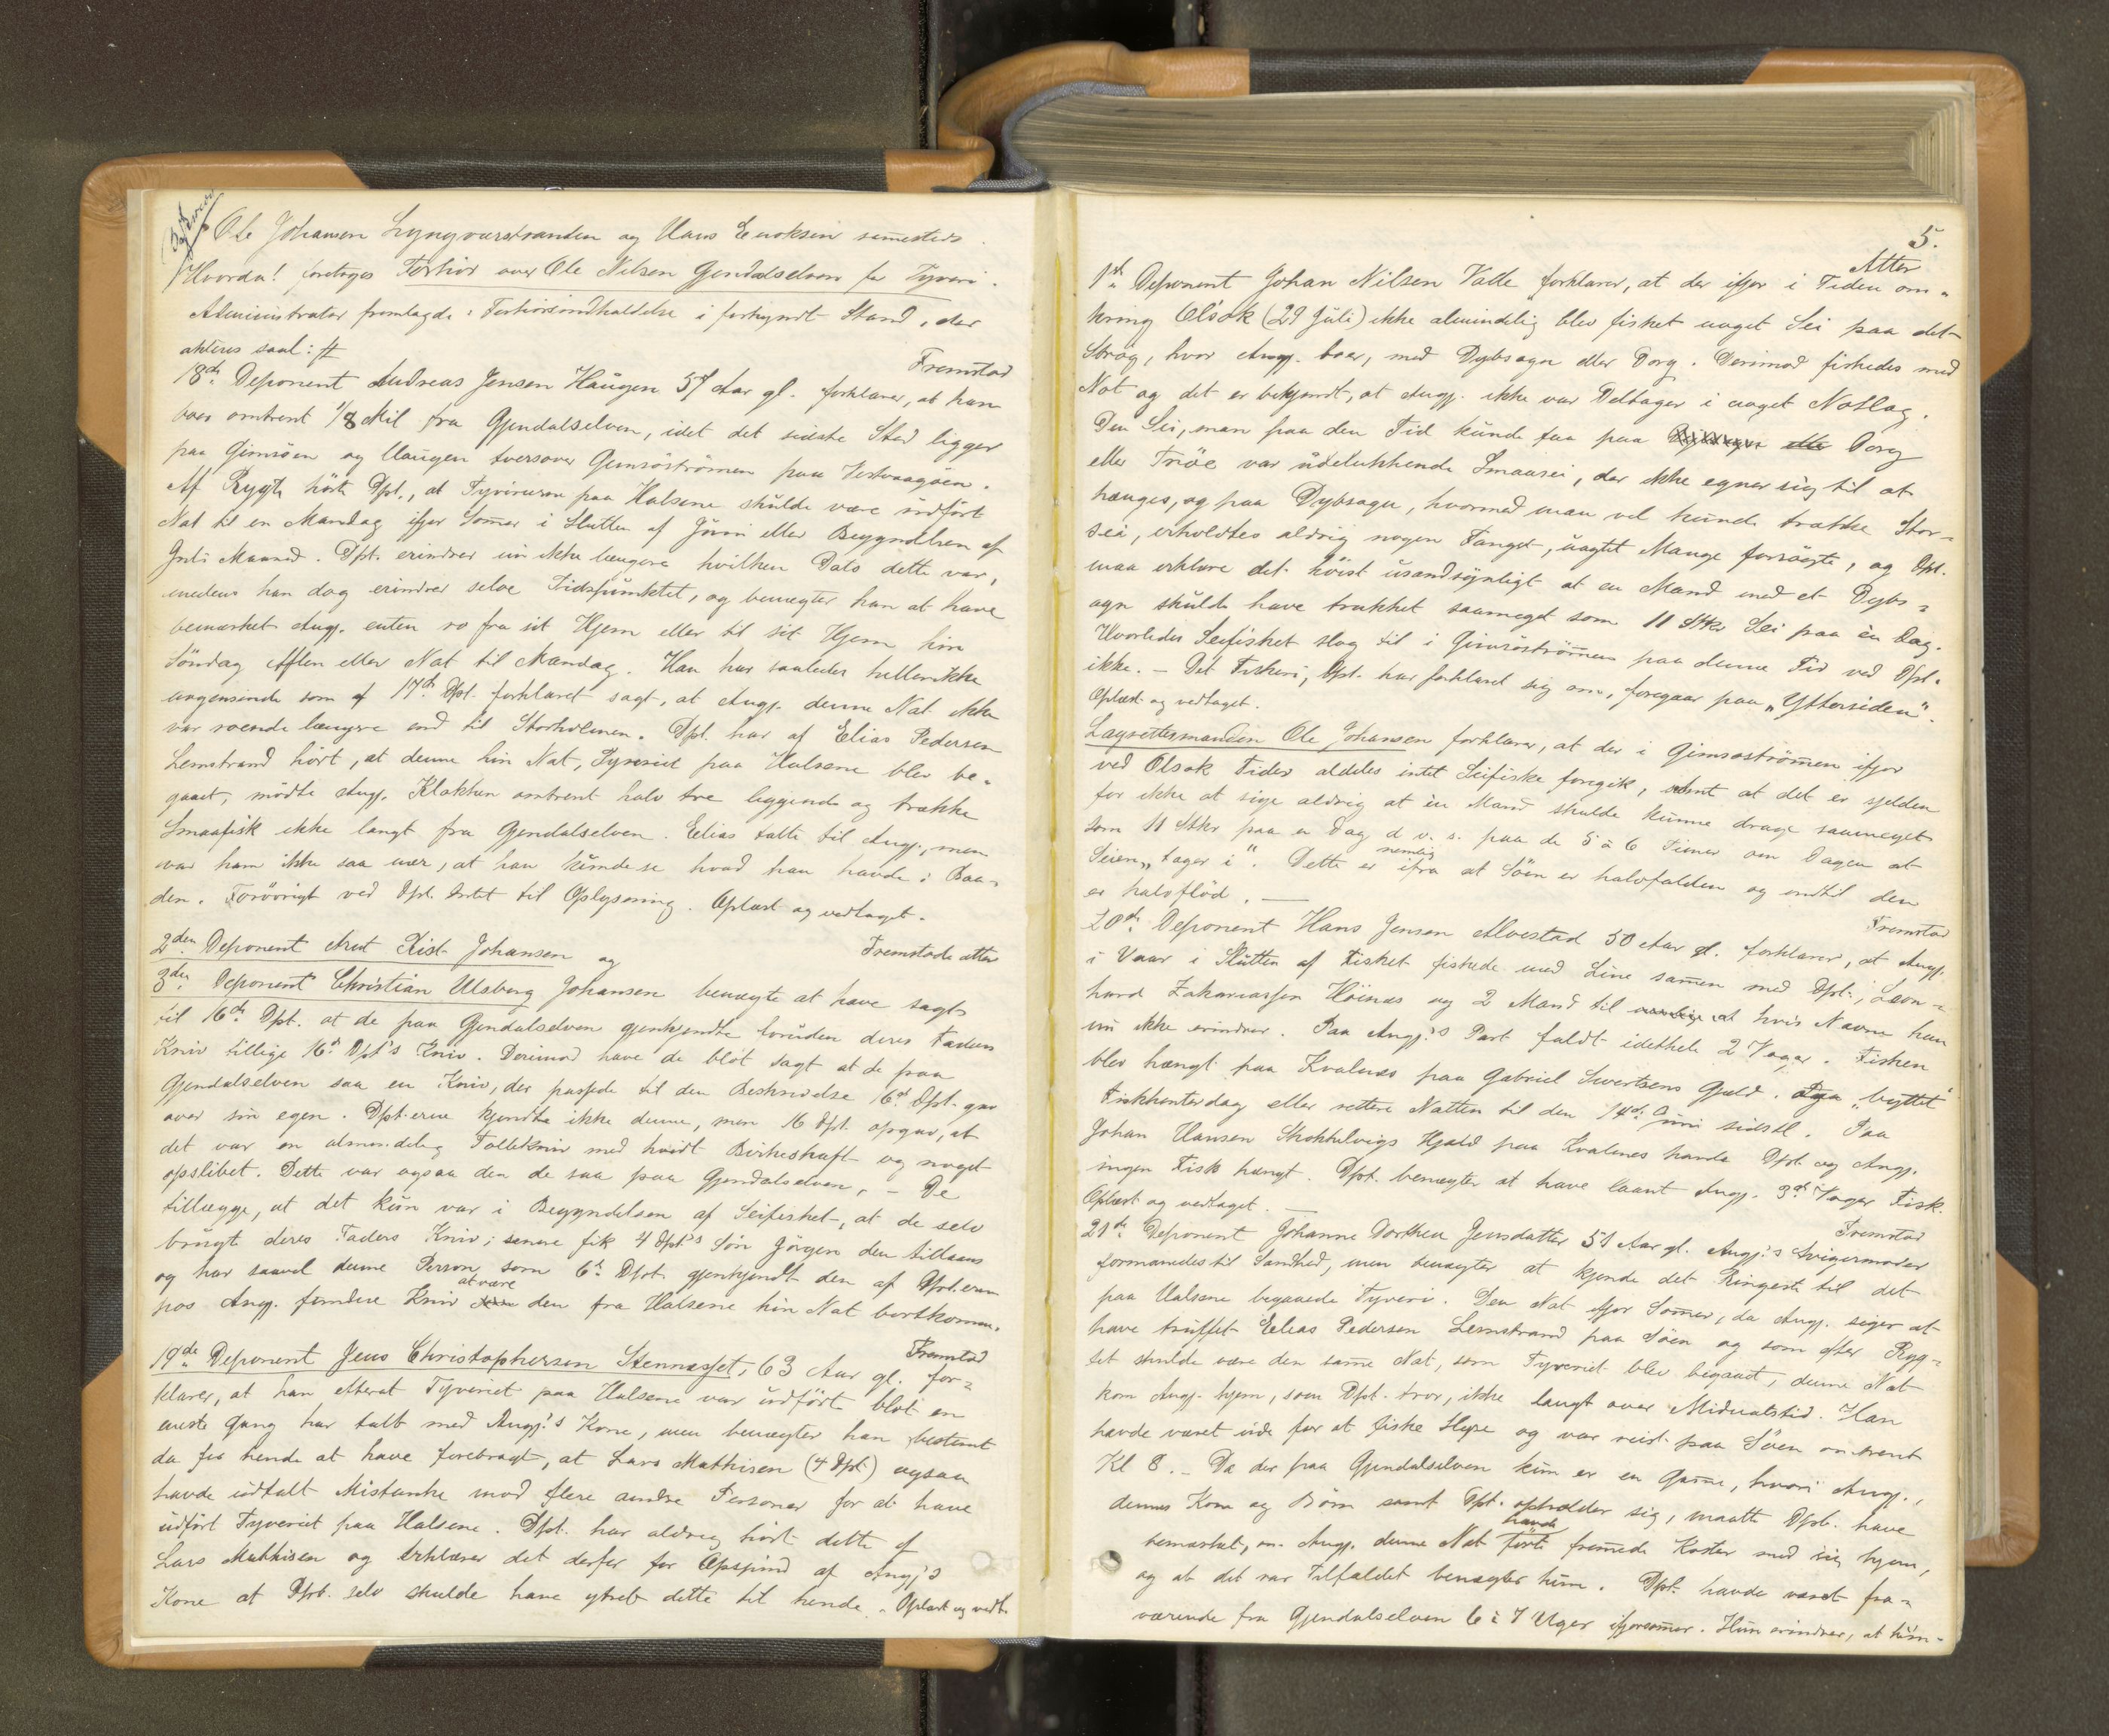 Ole Johansen Lyngværstranden og Hans Enoksen samesteds.
Hvorda! foretoges Forhör over Ole Nilsen Gjendalselven for Tyveri.
Administrator fremlagde: Forhörsindkaldelse i forkyndt Stand, der
akteres saal: #
Fremstod
18de Deponent Andreas Jensen Haugen 57 Aar gl. forklarer, at han
boer omtrent 1/8 Mil fra Gjendalselven, idet det sidste Sted ligger
paa Gimsöen og Haugen tversover Gimsöströmmen paa Vestvaagöen.
Af Rygte hörte Dpt., at Tyverierne paa Halsene skulde være udfört
Nat til en Mandag ifjor Sommer i Slutten af Juni eller Begyndelsen af
Juli Maaned. Dpt. erindrer nu ikke længere hvilken Dato dette var,
medens han dog erindrer selve Tidspunktet, og benegter han at have
bemærket Angj. enten ro fra sit Hjem eller til sit Hjem hin
Söndag Aften eller Nat til Mandag. Han har saaledes hellerikke
nogensinde som af 17de Dpt. forklaret sagt, at Angj. denne Nat ikke
var roende længere end til Storholmen. Dpt. har af Elias Pedersen
Lemstrand hört, at denne hin Nat, Tyveriet paa Halsene blev be-
gaaet, mödte Angj. Klokken omtrent halv tre liggende og trække
Smaafisk ikke langt fra Gjendalselven. Elias talte til Angj., men
var ham ikke saa nær, at han kunde se hvad han havde i Baa-
den. Forövrigt ved Dpt. Intet til Oplysning. Oplæst og vedtaget.
Fremstode atter
2den Deponent Arnt Kist. Johansen og
3die Deponent Christian Ulsberg Johansen benegte at have sagt
til 16de Dpt. at de paa Gjendalselven gjenkjendte foruden deres Faders
Kniv tillige 16de Dpt's Kniv. Derimod have de blot sagt at de paa
Gjendalselven saa en Kniv, der passede til den Beskrivelse 16de Dpt. gav
over sin egen. Dpt.erne kjendte ikke denne, men 16 Dpt. opgav, at
det var en almindelig Tollekniv med hvidt Birkeskaft og noget
opslibet. Dette var ogsaa den de saa paa Gjendalselven, – De
tillægge, at det kun var i Begyndelsen af Seifisket, at de selv
brugt deres Faders Kniv; senere fik 4 Dpt's Sön Jörgen den tillaans
og har saavel denne Person som 6te Dpt. gjenkjendt den af Dpt.erne
hos Angj. fundne Kniv at være den fra Halsene hin Nat bortkomne.
Fremstod
19de Deponent Jens Christophersen Stennæsset, 63 Aar gl. for-
klarer, at han efterat Tyveriet paa Halsene var udfört blot en
eneste Gang har talt med Angj.'s Kone, men benegter han bestemt
da for hende at have forebragt, at Lars Mathisen (4 Dpt) ogsaa
havde udtalt Mistanke mod flere andre Personer for at have
udfört Tyveriet paa Halsene. Dpt. har aldrig hört dette af
Lars Mathisen og erklærer det derfor for Opspind af Angj's
Kone at Dpt. selv skulde have ytret dette til hende. Oplæst og vedt.
5.
Atter
1ste Deponent Johan Nilsen Valle forklarer, at der ifjor i Tiden om-
kring Olsok (29 Juli) ikke almindelig blev fisket noget Sei paa det
Strög, hvor Angj. boer, med Dybsagn eller Dorg. Derimod fiskedes med
Not og det er bekjendt, at Angj. ikke var Deltager i noget Notlag.
Den Sei, man paa den Tid kunde faa paa Dorg
eller Troe var udelukkende Smaasei, der ikke egner sig til at
hænges, og paa Dybsagn, hvormed man vel kunde trække Stor-
sei, erholdtes aldrig nogen Fangst, uagtet Mange forsögte, og Dpt.
maa erklære det höist usandsynligt at en Mand med et Dybs-
agn skulde have trukket saameget som 11 Stkr Sei paa èn Dag.
Hvorledes Seifisket slog til i Gimsöströmmen paa denne Tid ved Dpt.
ikke. – Det Fiskeri, Dpt. har forklaret sig om, foregaar paa „Yttersiden".
Oplæst og vedtaget.
Lagrettesmanden Ole Johansen forklarer, at der i Gimsöströmmen ifjor
ved Olsok Tider aldeles intet Seifiske foregik, samt at det er sjelden
for ikke at sige aldrig at èn Mand skulde kunne drage saameget
som 11 Stkr paa en Dag d. v. s. paa de 5 à 6 Timer om Dagen at
Seien „tager i". Dette er nemlig ifra at Söen er halvfalden og indtil den
er halvflöd. —
Fremstod
20de Deponent Hans Jensen Alvestad 50 Aar gl. forklarer, at Angj.
i Vaar i Slutten af Fisket fiskede med Line sammen med Dpt., Leon-
hard Zakariassen Höinæs og 2 Mand til hvis Navne han
nu ikke erindrer. Paa Angj.'s Part faldt idethele 2 Vager. Fisken
blev hængt paa Kvalnæs paa Gabriel Sivertsens Gjeld. „byttet"
Fiskhenterdag eller rettere Natten til den 14de Juni sidstl. Paa
Johan Hansen Strokkelvigs Hjæld paa Kvalnes havde Dpt. og Angj.
ingen Fisk hængt. Dpt. benegter at have laant Angj. 3de Vager Fisk.
Oplæst og vedtaget. —
Fremstod
21de Deponent Johanne Dorthea Jensdatter 51 Aar gl. Angj.'s Svigermoder
formanedes til Sandhed, men benegter at kjende det Ringeste til det
paa Halsene begaaede Tyveri. Den Nat ifjor Sommer, da Angj. siger at
have truffet Elias Pedersen Lemstrand paa Söen og som efter Ryg-
tet skulde være den samme Nat, som Tyveriet blev begaaet, denne Nat
kom Angj. hjem, som Dpt. tror, ikke langt over Midnatstid. Han
havde været ude for at fiske Hyse og var reist paa Söen omtrent
Kl 8. – Da der paa Gjendalselven kun er en Gamme, hvori Angj.,
dennes Kone og Börn samt Dpt. opholder sig, maatte Dpt. have
bemærket, om Angj. denne Nat havde förte fremmede Koster med sig hjem,
og at det var Tilfældet benegter hun. Dpt. havde været fra-
værende fra Gjendalselven 6 à 7 Uger ifjorsommer. Hun erindrer, at hun